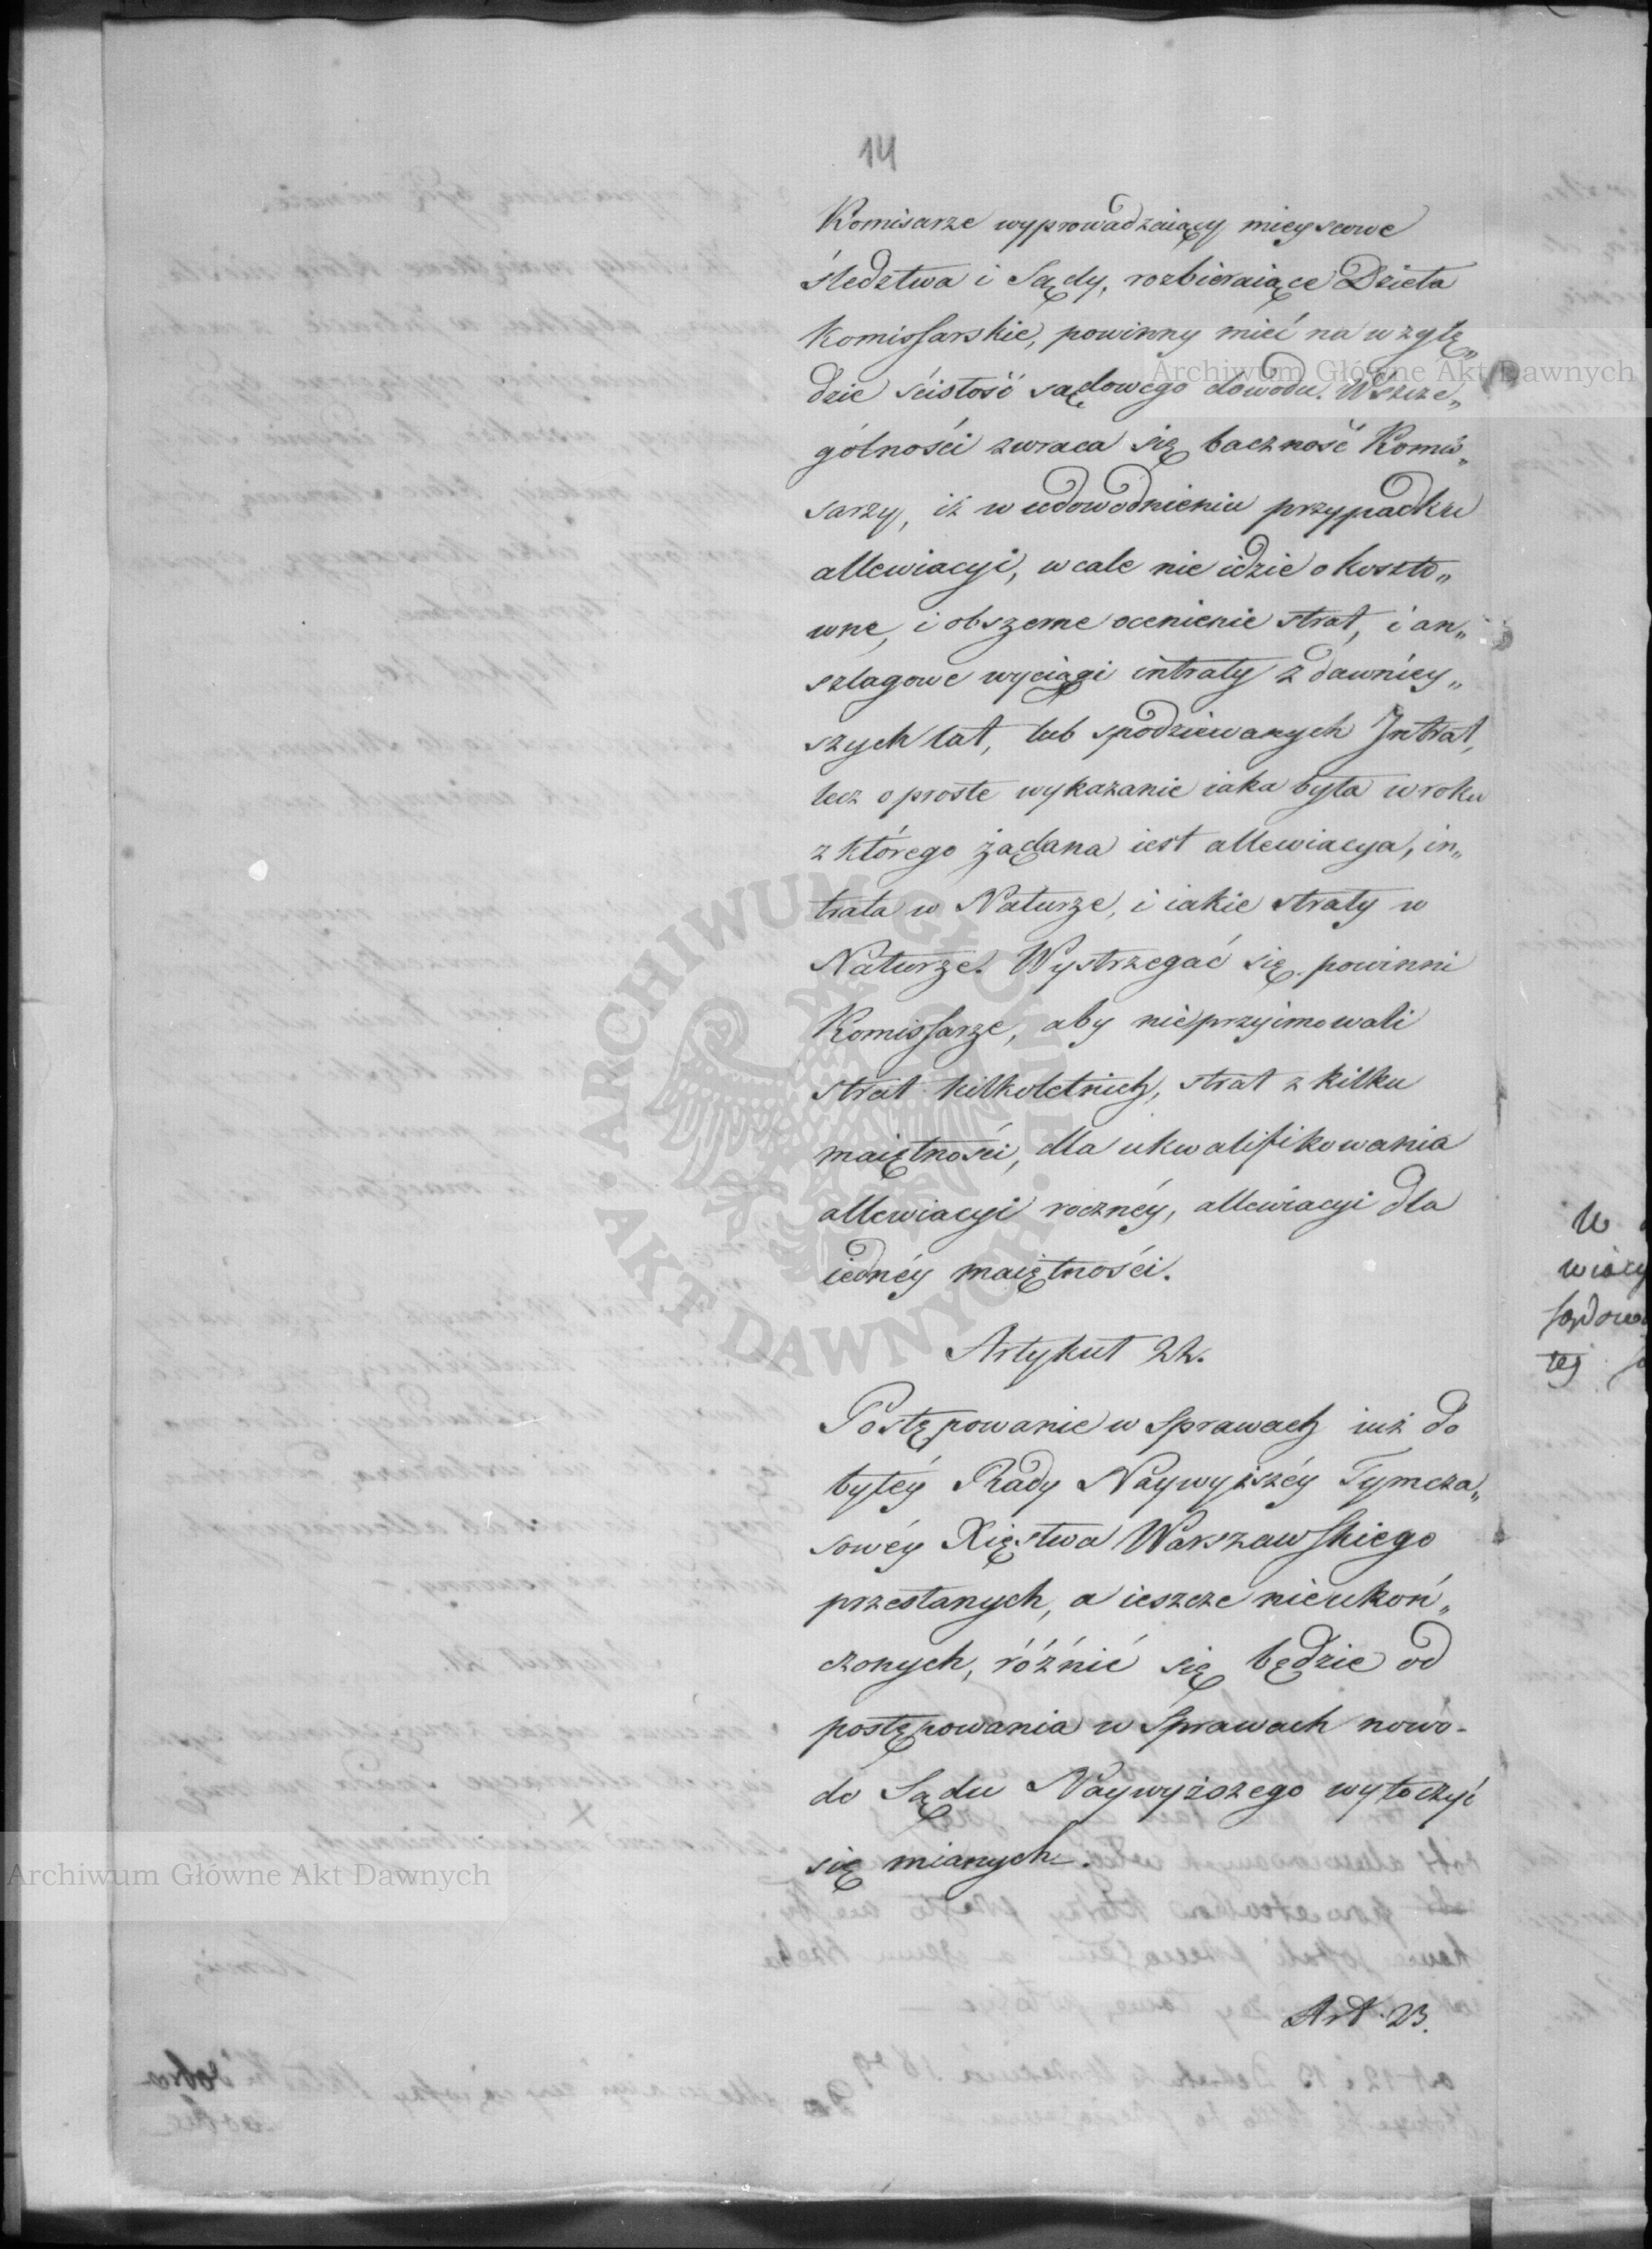 14
Komisarze wyprowadzaiący mieyscowe
śledztwa i Sądy, rozbieraiące Dzieła
Komissarskie, powinny mieć na wzglę„
dzie ścisłość sądowego dowodu. Wszcze„
gólności zwraca się baczność Komis„
sarzy, iż w udowodnieniu przypadku
allewiacyi, wcale nie idzie o koszto„
wne, i obszerne ocenienie strat, i an„
szlagowe wyciągi intraty z dawniey„
szych lat, lub spodziewanych Intrat,
lecz o proste wykazanie iaka była w roku
z którego żądana iest allewiacya, in„
trata w Naturze, i iakie straty w
Naturze. Wystrzegać się powinni
Komissarze, aby nieprzyimowali
strat kilkoletnich, strat z kilku
maiętności, dla ukwalifikowania
allewiacyi rocznéy, allewiacyi dla
iednéy maiętności.
Artykuł 22.
Postępowanie w Sprawach iuż do
byłéy Rady Naywyższéy Tymcza„
sowéy Xięstwa Warszawskiego
przesłanych, a ieszcze nieukoń„
czonych, różnić się będzie od
postępowania w Sprawach nowo-
do Sądu Naywyższego wytoczyć
się mianych.
Art. 23.
Archiwum Główne Akt Dawnych
Archiwum Główne Akt Dawnych
ARCHIWUM GŁÓWNE AKT DAWNYCH